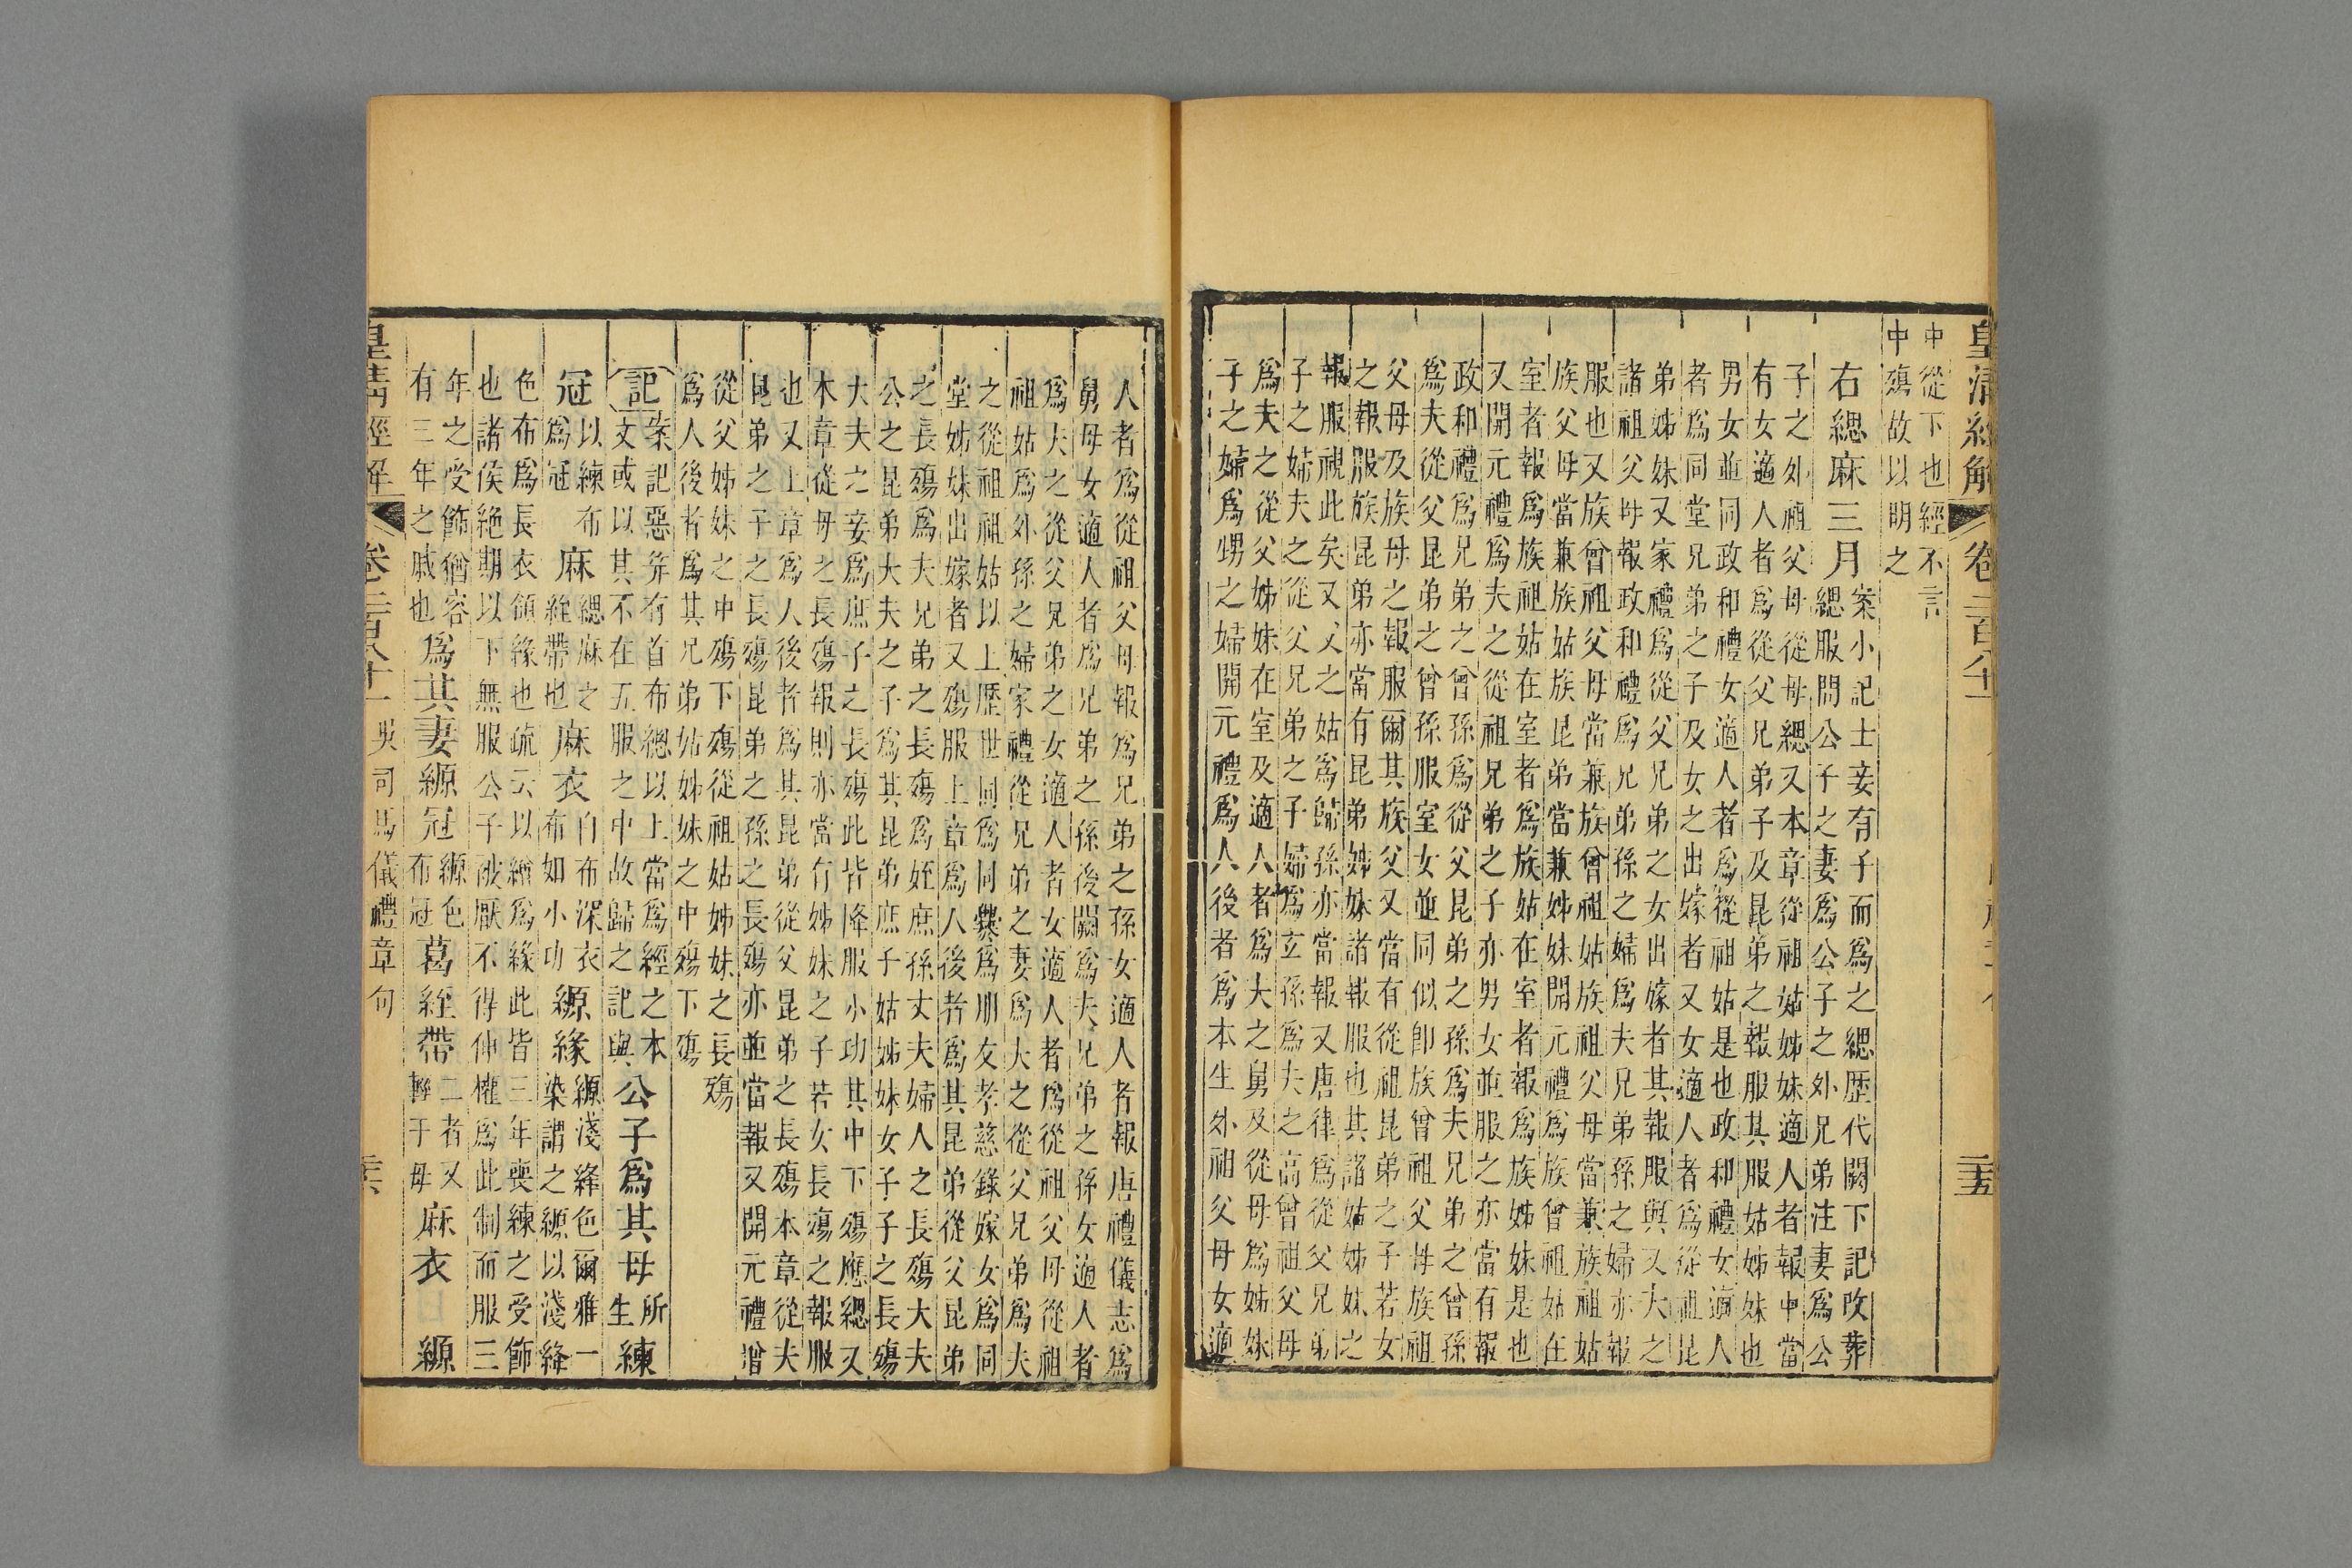 皇清經解
卷二百八十一
二十五
中從下也經不言
中殤故以明之
右緦麻三月
案小記士妾有子而爲之緦歷代闕下記改葬
緦服問公子之妻爲公子之外兄弟注妻爲公
子之外祖父母從母緦又本章從祖姑姊妹適人者報中當
有女適人者爲從父兄弟子及昆弟之報服其服姑姊妹也
男女並同政和禮女適人者爲從祖姑是也政和禮女適人
者爲同堂兄弟之子及女之出嫁者又女適人者爲從祖昆
弟姊妹又家禮爲從父兄弟之女出嫁者其報服與又大之
諸祖父母報政和禮爲兄弟孫之婦爲夫兄弟孫之婦亦報
服也又族曾祖父母當兼族曾祖姑族祖父母當兼族祖姑
族父母當兼族姑族昆弟當兼姊妹開元禮爲族曾祖姑在
室者報爲族祖姑在室者爲族姑在室者報爲族姊妹是也
又開元禮爲夫之從祖兄弟之子亦男女並服之亦當有報
政和禮爲兄弟之曾孫爲從父昆弟之孫爲夫兄弟之曾孫
爲夫從父昆弟之曾孫服室女並同似卽族曾祖父母族祖
父母及族母之報服爾其族父又當有從祖昆弟之子若女
之報服族昆弟亦當有昆弟姊妹諸報服也其諸姑姊妹之
報服視此矣又父之姑爲歸孫亦當報又唐律爲從父兄弟
子之婦夫之從父兄弟之子婦爲玄孫爲夫之高曾祖父母
爲夫之從父姊妹在室及適人者爲大之舅及從母爲姊妹
子之婦爲甥之婦開元禮爲人後者爲本生外祖父母女適
人者爲從祖父母報爲兄弟之孫女適人者報唐禮儀志爲
舅母女適人者爲兄弟之孫後闕爲夫兄弟之孫女適人者
爲大之從父兄弟之女適人者女適人者爲從祖父母從祖
祖姑爲外孫之婦家禮從兄弟之妻爲大之從父兄弟爲夫
之從祖祖姑以上歷世同爲同爨爲朋友孝慈錄嫁女爲同
堂姊妹出嫁者又殤服上章爲人後者爲其昆弟從父昆弟
之長殤爲夫兄弟之長殤爲姪庶孫丈夫婦人之長殤大夫
公之昆弟大夫之子爲其昆弟庶子姑姊妹女子子之長殤
大夫之妾爲庶子之長殤此皆降服小功其中下殤應緦又
本章從母之長殤報則亦當有姊妹之子若女長殤之報服
也又上章爲人後者爲其昆弟從父昆弟之長殤本章從夫
昆弟之子之長殤昆弟之孫之長殤亦並當報又開元禮增
從父姊妹之中殤下殤從祖姑姊妹之長殤
爲人後者爲其兄弟姑姊妹之中殤下殤
記
案記惡笄有首布總以上當爲經之本
文或以其不在五服之中故歸之記與
公子爲其母
所
生
練
冠
以練布
爲冠
麻
緦麻之
絰帶也
麻衣
白布深衣
布如小功
縓緣
縓淺絳色爾雅一
染謂之縓以淺絳
色布爲長衣領緣也疏云以繒爲緣此皆三年喪練之受飾
也諸侯絶期以下無服公子被厭不得伸權爲此制而服三
年之受飾猶容
有三年之戚也
爲其妻縓冠
縓色
布冠
葛絰帶
二者又
輕于母
麻衣縓
皇清經解
卷二百八十一
吳司馬儀禮章句
二十六